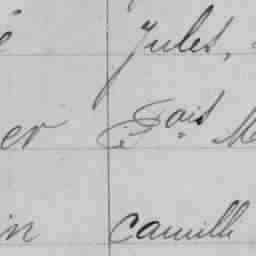 e Jules,
er Fois M
in Camille